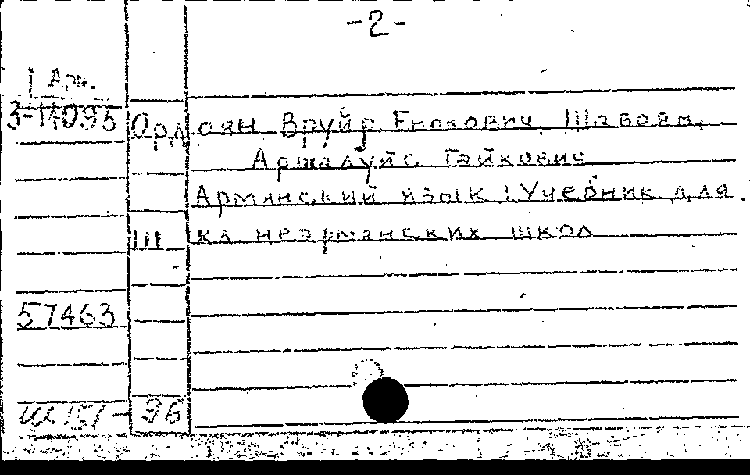 -2-
1 Арм.
3-14095
Ордоян Вруйр Енокович, Шавоян
Аршалуйс Гайкович
Армянский язык : Учебник для
Ш кл неармянских школ
57463
-96